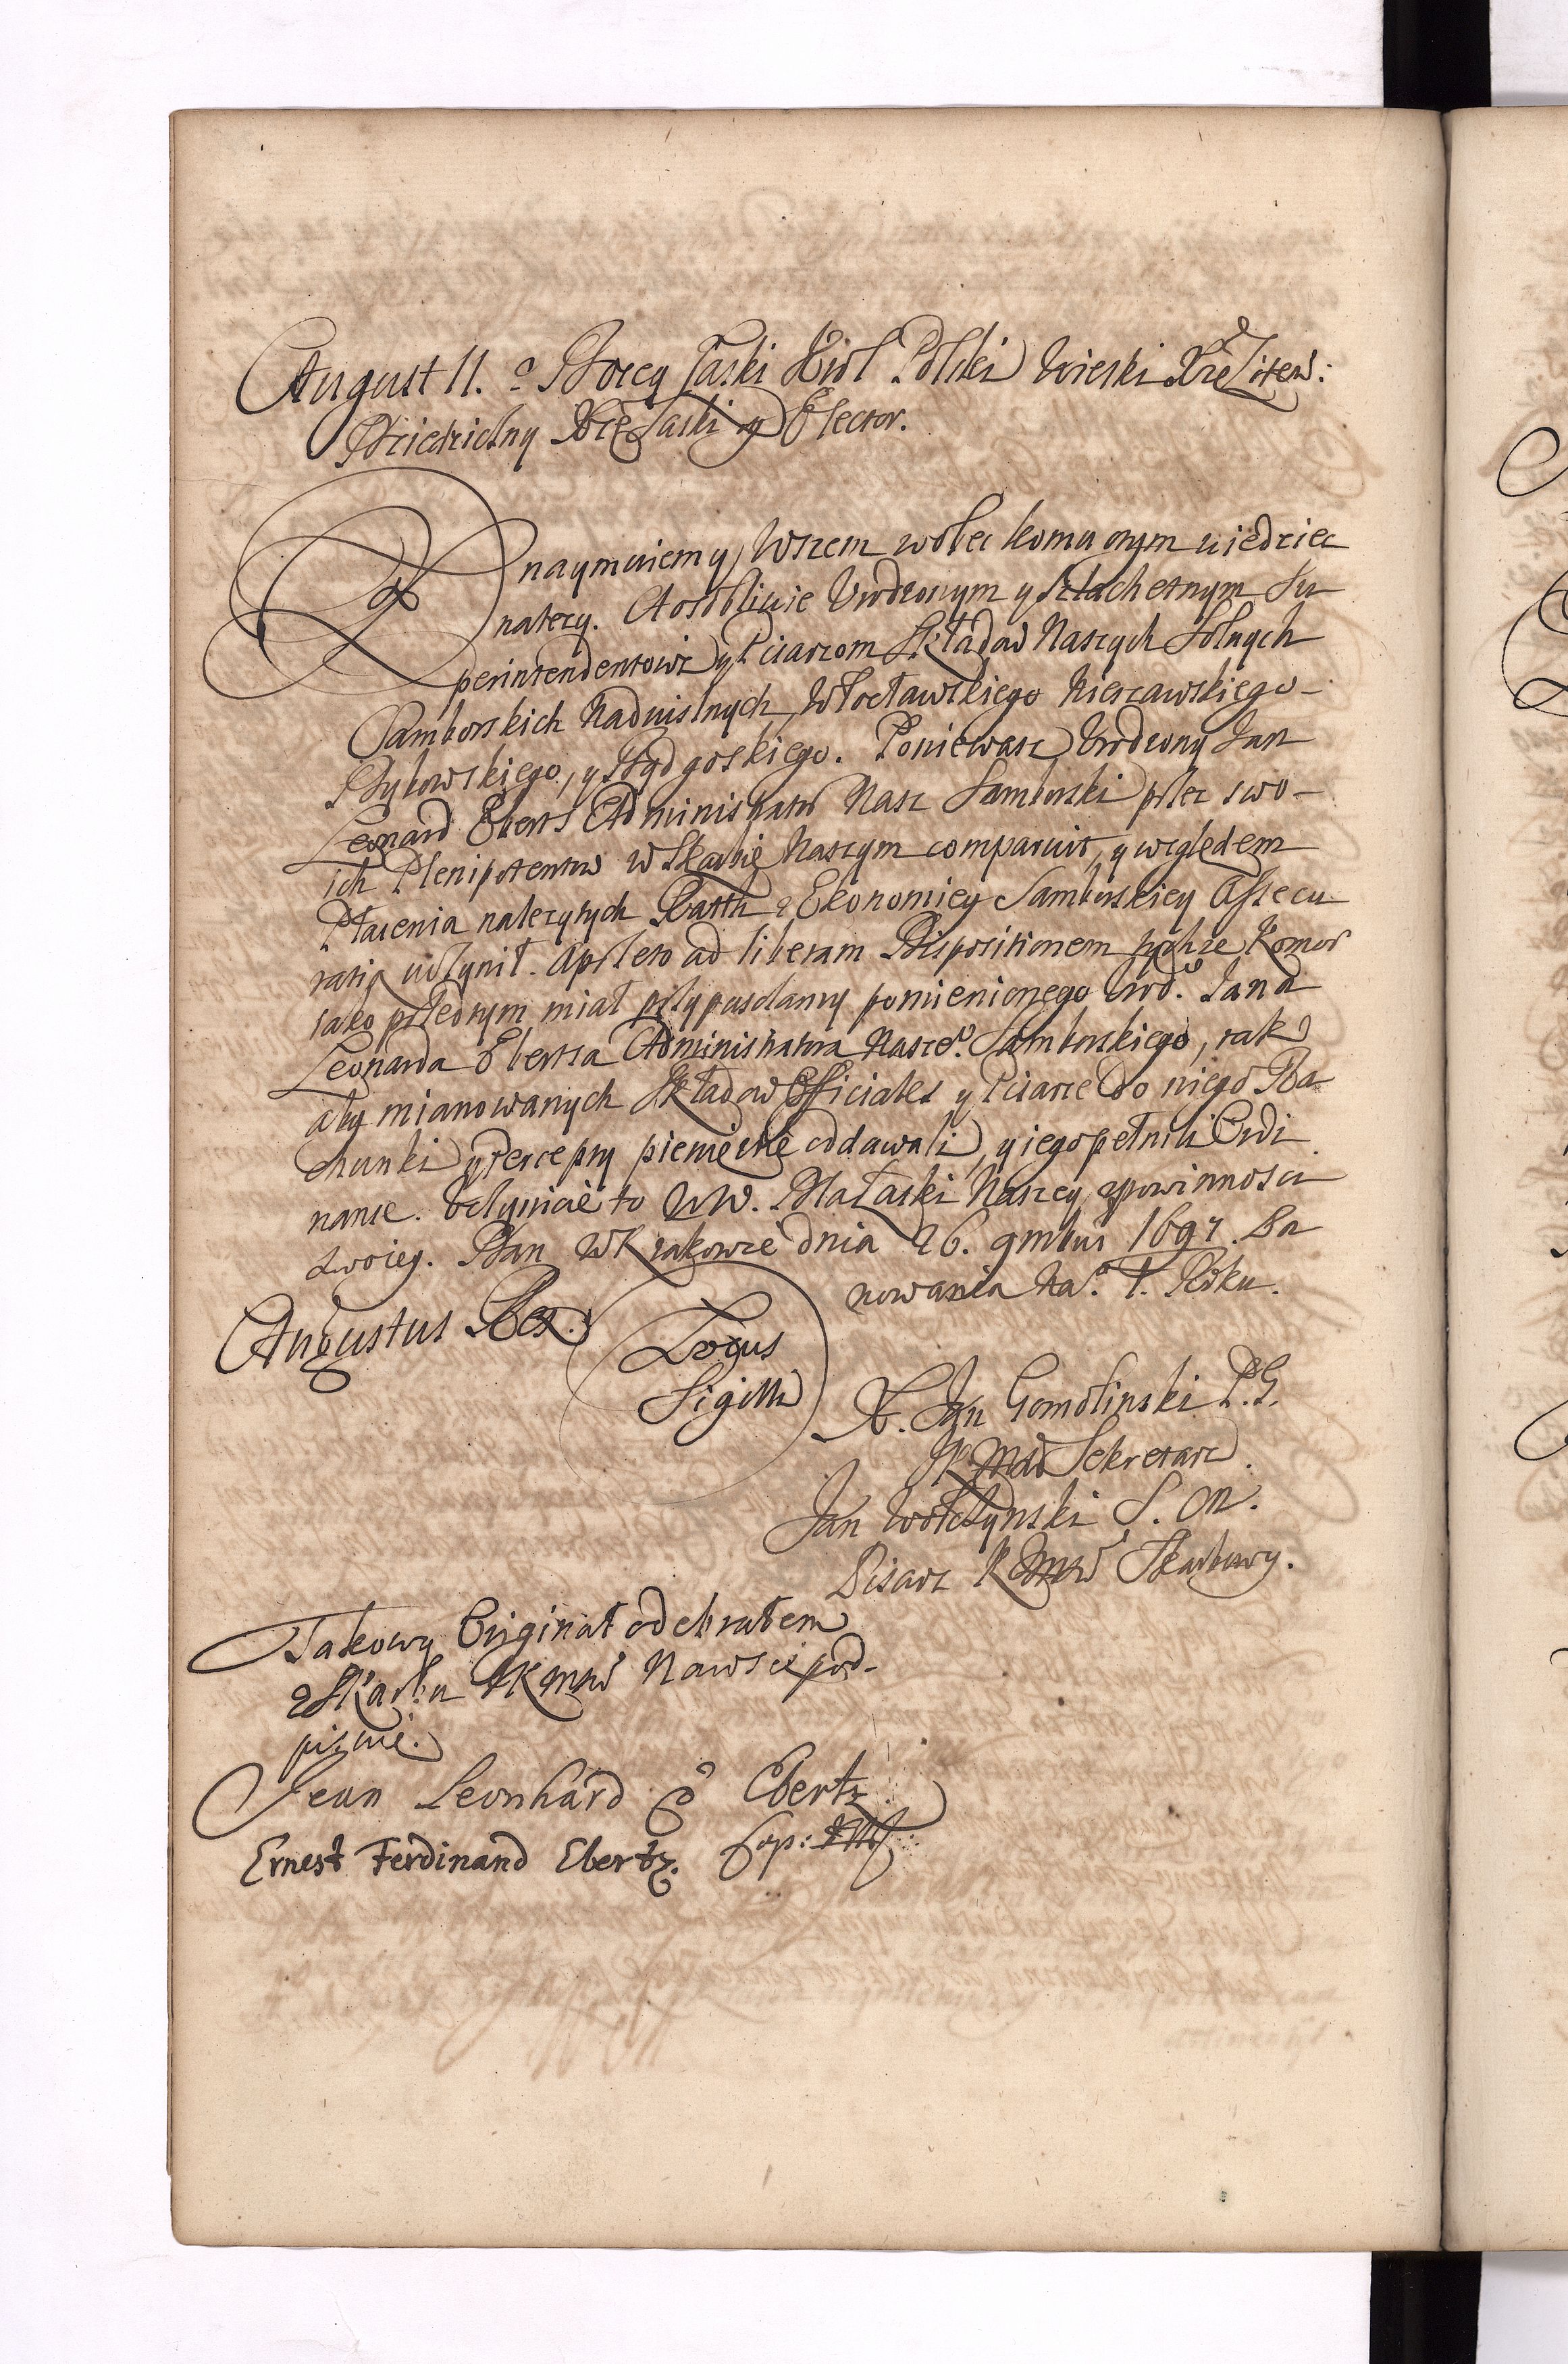 August II. z Bozey łaski Krol Polski Wielki Xże Litew:
Dziedziczny Xże Saski y Elector.
Oznaymuiemy Wszem wobec komu o tym wiedziec
nalezy. A osobliwie Urodzonym y Szlachetnym Su
perintendentowi y Pisarzom Składow Naszych Solnych
Samborskich Nadwislnych, Włocławskiego Nieszawskiego
Dybowskiego, y Bydgoskiego. Poniewasz Urodzony Jan
Leonard Eberts Administrator Nasz Samborski przez swo-
ich Plenipotentow w Skarbie Naszym comparuit, y względem
Płacenia nalezytych Ratth z Ekonomiey Samborskiey Assecu
ratią uczynił. A przeto ad liberam Dispositionem tychze Komor
iako przedtym miał przypusczamy pomienionego Urdo. Jana
Leonarda Ebertsa Administratora Nasze°. Samborskiego, tak
aby mianowanych Składow Officiales y Pisarze do niego Ra-
chunki y Percepty pieniężne oddawali, y iego pełnili Ordi
nanse. Uczynicie to UW. Dla Łaski Naszey, y powinnosci
swoiey. Dan w Krakowie dnia 26. 9mbris 1697. Pa
nowania Na°. I. Roku.
Augustus Rex.
Locus
Sigilli
X. Jan Gomolinski P. G.
JKMci Sekretarz.
Jan Wołczynski S. M.
Pisarz JKMci Skarbowy.
Takowy Originał odebrałem
z Skarbu JKMci Na w sie pod-
pisuie.
Jean Leonhard d' Ebertz
Ernest Ferdinand Ebertz. Cop: